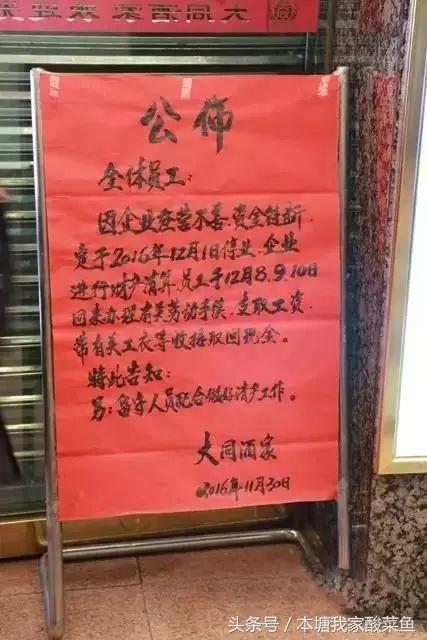 公佈
全体员工:
因企业经营不善.资金链断,
定于2016年12月1日停业.企业
进行财产清算.员工于12月8.9.10日
回来办理有关劳动手续.支取工资.
带有关工衣等收据取回现金。
特此告知:
另:留守人员配合做好清产工作。
大同酒家
2016年11月30日
头条号/本塘我家酸菜鱼